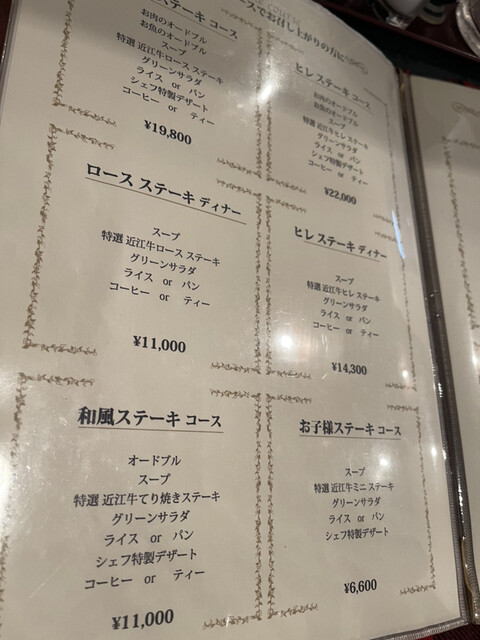 コースでお召し上がりの方に
ステーキ コース
お肉のオードブル
お魚のオードブル
スープ
特選 近江牛ロース ステーキ
グリーンサラダ
ライス or パン
シェフ特製デザート
コーヒー or ティー
¥19,800
ヒレ ステーキ コース
お肉のオードブル
お魚のオードブル
スープ
特選 近江牛ヒレ ステーキ
グリーンサラダ
ライス or パン
シェフ特製デザート
コーヒー or ティー
¥22,000
ロース ステーキ ディナー
スープ
特選 近江牛ロース ステーキ
グリーンサラダ
ライス or パン
コーヒー or ティー
¥11,000
ヒレ ステーキ ディナー
スープ
特選 近江牛ヒレ ステーキ
グリーンサラダ
ライス or パン
コーヒー or ティー
¥14,300
和風ステーキ コース
オードブル
スープ
特選 近江牛てり焼きステーキ
グリーンサラダ
ライス or パン
シェフ特製デザート
コーヒー or ティー
¥11,000
お子様ステーキ コース
スープ
特選 近江牛ミニ ステーキ
グリーンサラダ
ライス or パン
シェフ特製デザート
¥6,600